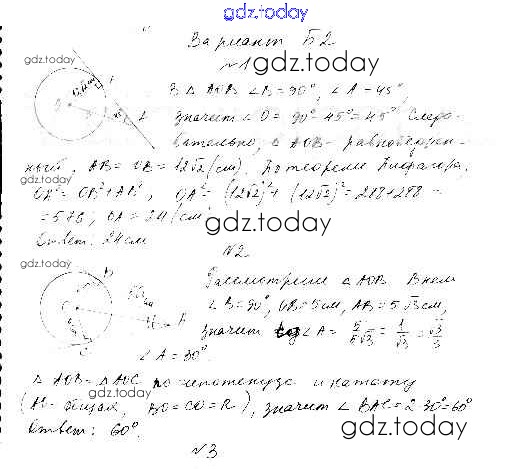 gdz.today
Вариант Б2
gdz.today
№1
gdz.today
В △ AOB ∠B = 90°, ∠A = 45°
значит ∠O = 90° - 45° = 45°. Следо-
вательно, △ AOB - равнобедрен-
ный, AB = OB = 12√2 (см). По теореме Пифагора:
gdz.today
OA² = OB² + AB², OA² = (12√2)² + (12√2)² = 288 + 288 =
= 576, OA = 24 (см)
gdz.today
Ответ: 24 см
№2
gdz.today
Рассмотрим △ AOB. В нем
∠B = 90°, OB = 5 см, AB = 5√3 см,
значит tg∠A = 5/5√3 = 1/√3 = √3/3
∠A = 30°.
△ AOB = △ AOC по гипотенузе и катету
gdz.today
(AO - общая, BO = CO = R), значит ∠BAC = 2·30° = 60°
Ответ: 60°.
gdz.today
№3